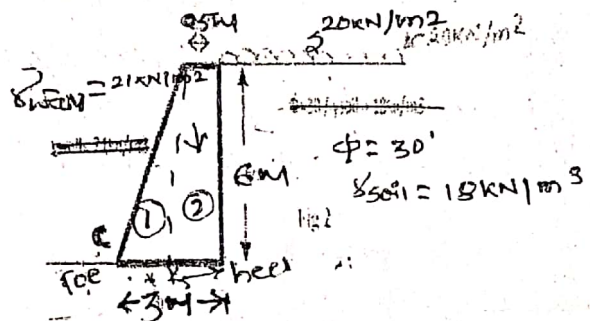 0.5M
20KN/m2
γwall = 21KN/m2
6M
φ = 30'
γsoil = 18KN/m3
① ②
Toe
heel
3M